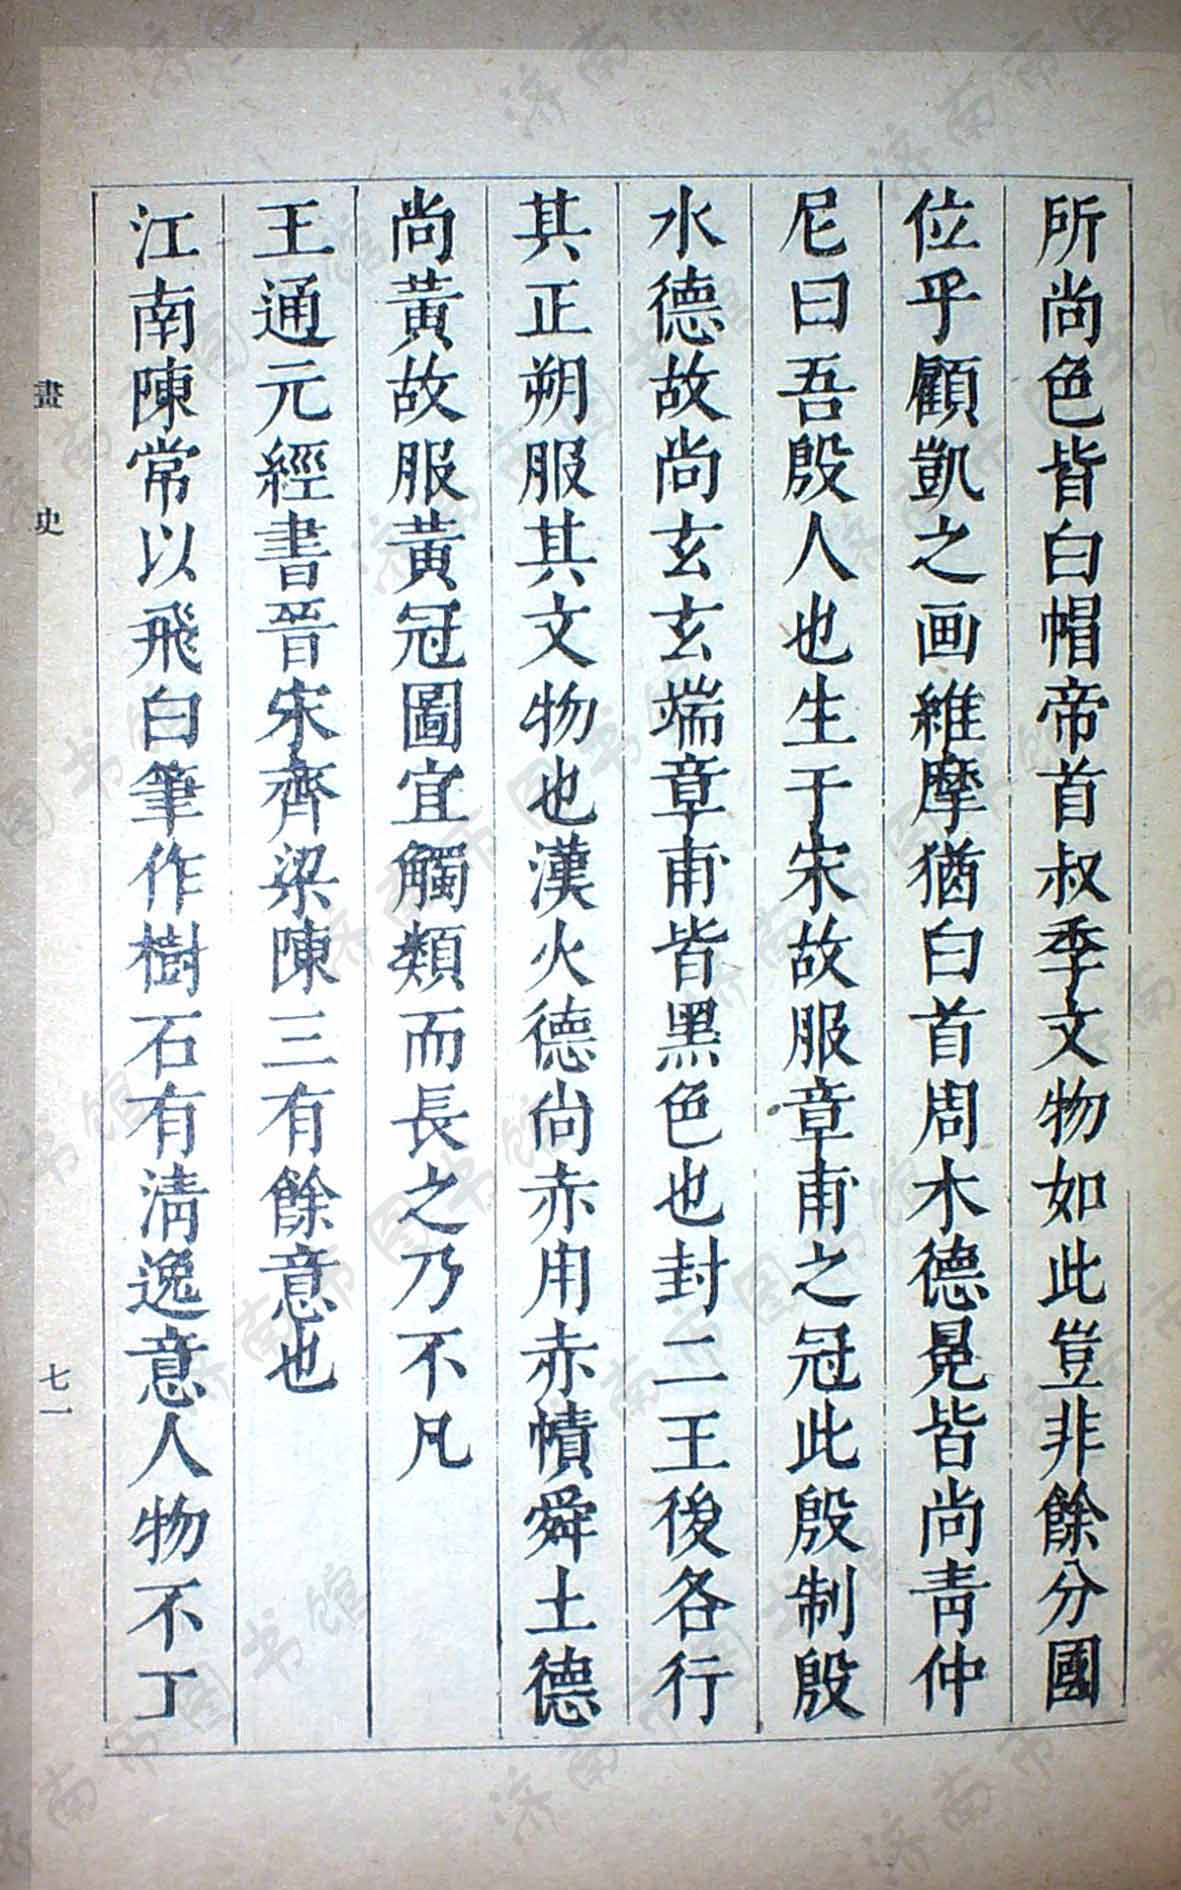 所尚色皆白帽帝首叔季文物如此豈非餘分國
位乎顧凱之画維摩猶白首周木德冕皆尚青仲
尼曰吾殷人也生于宋故服章甫之冠此殷制殷
水德故尚玄玄端章甫皆黑色也封二王後各行
其正朔服其文物也漢火德尚赤用赤幘舜土德
尚黃故服黃冠圖宜觸類而長之乃不凡
王通元經書晉宋齊梁陳三有餘意也
江南陳常以飛白筆作樹石有清逸意人物不丁
畫史
七一
济南市图书馆